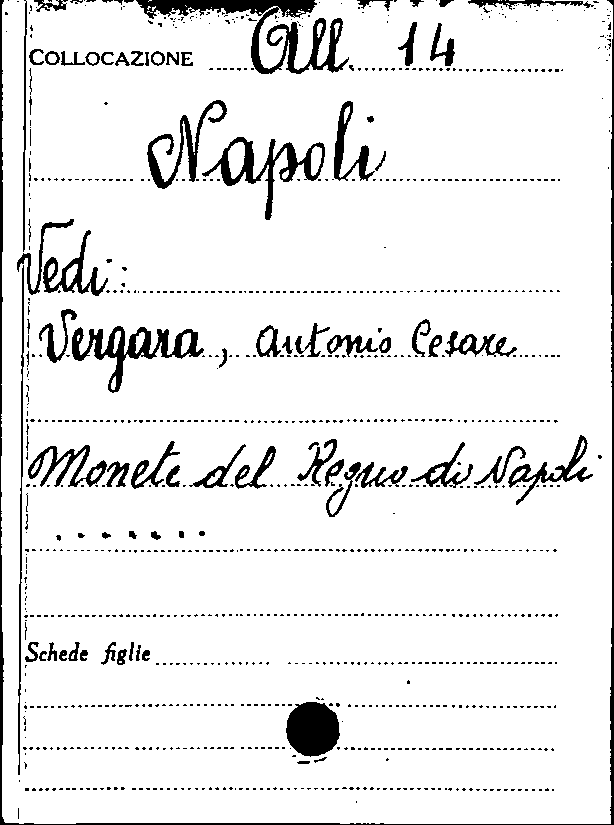 COLLOCAZIONE All. 14
Napoli
Vedi:
Vergara, Antonio Cesare
Monete del Regno di Napoli
.......
Schede figlie